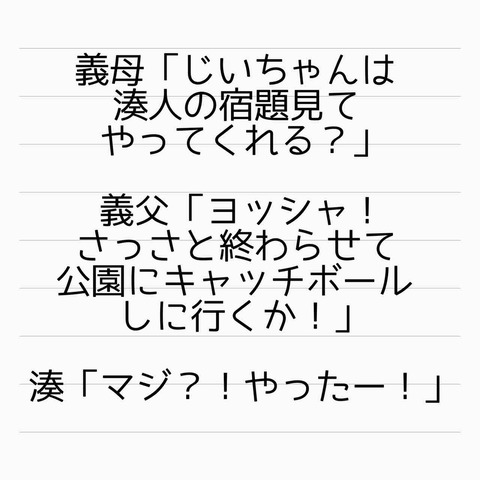 義母「じいちゃんは
湊人の宿題見て
やってくれる？」
義父「ヨッシャ！
さっさと終わらせて
公園にキャッチボール
しに行くか！」
湊「マジ？！やったー！」